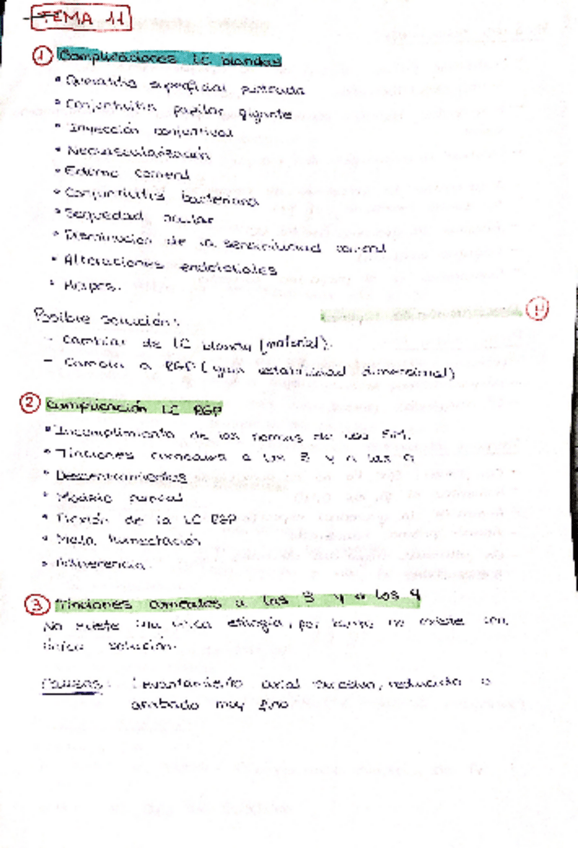 TEMA 11
1 Complicaciones LC blandas
• Queratitis superficial punteada
• Conjuntivitis papilar gigante
• Inyección conjuntival
• Neovascularización
• Edema corneal
• Conjuntivitis bacteriana
• Sequedad ocular
• Disminución de la sensibilidad corneal
• Alteraciones endoteliales
• Herpes.
Posible solución:
- Cambiar de LC blanda (material).
- Cambia a RGP (gran estabilidad dimensional)
2 Complicación LC RGP
• Incumplimiento de las normas de uso
• Tinciones corneales a las 3 y a las 9
• Descentramientos
• Moldeo corneal
• Flexión de la LC RGP
• Mala humectación
• Adherencia
3 Tinciones corneales a las 3 y a las 9
No existe una única etiología, por tanto no existe una
única solución.
Causas: Levantamiento axial excesivo, reducido o
acabado muy fino